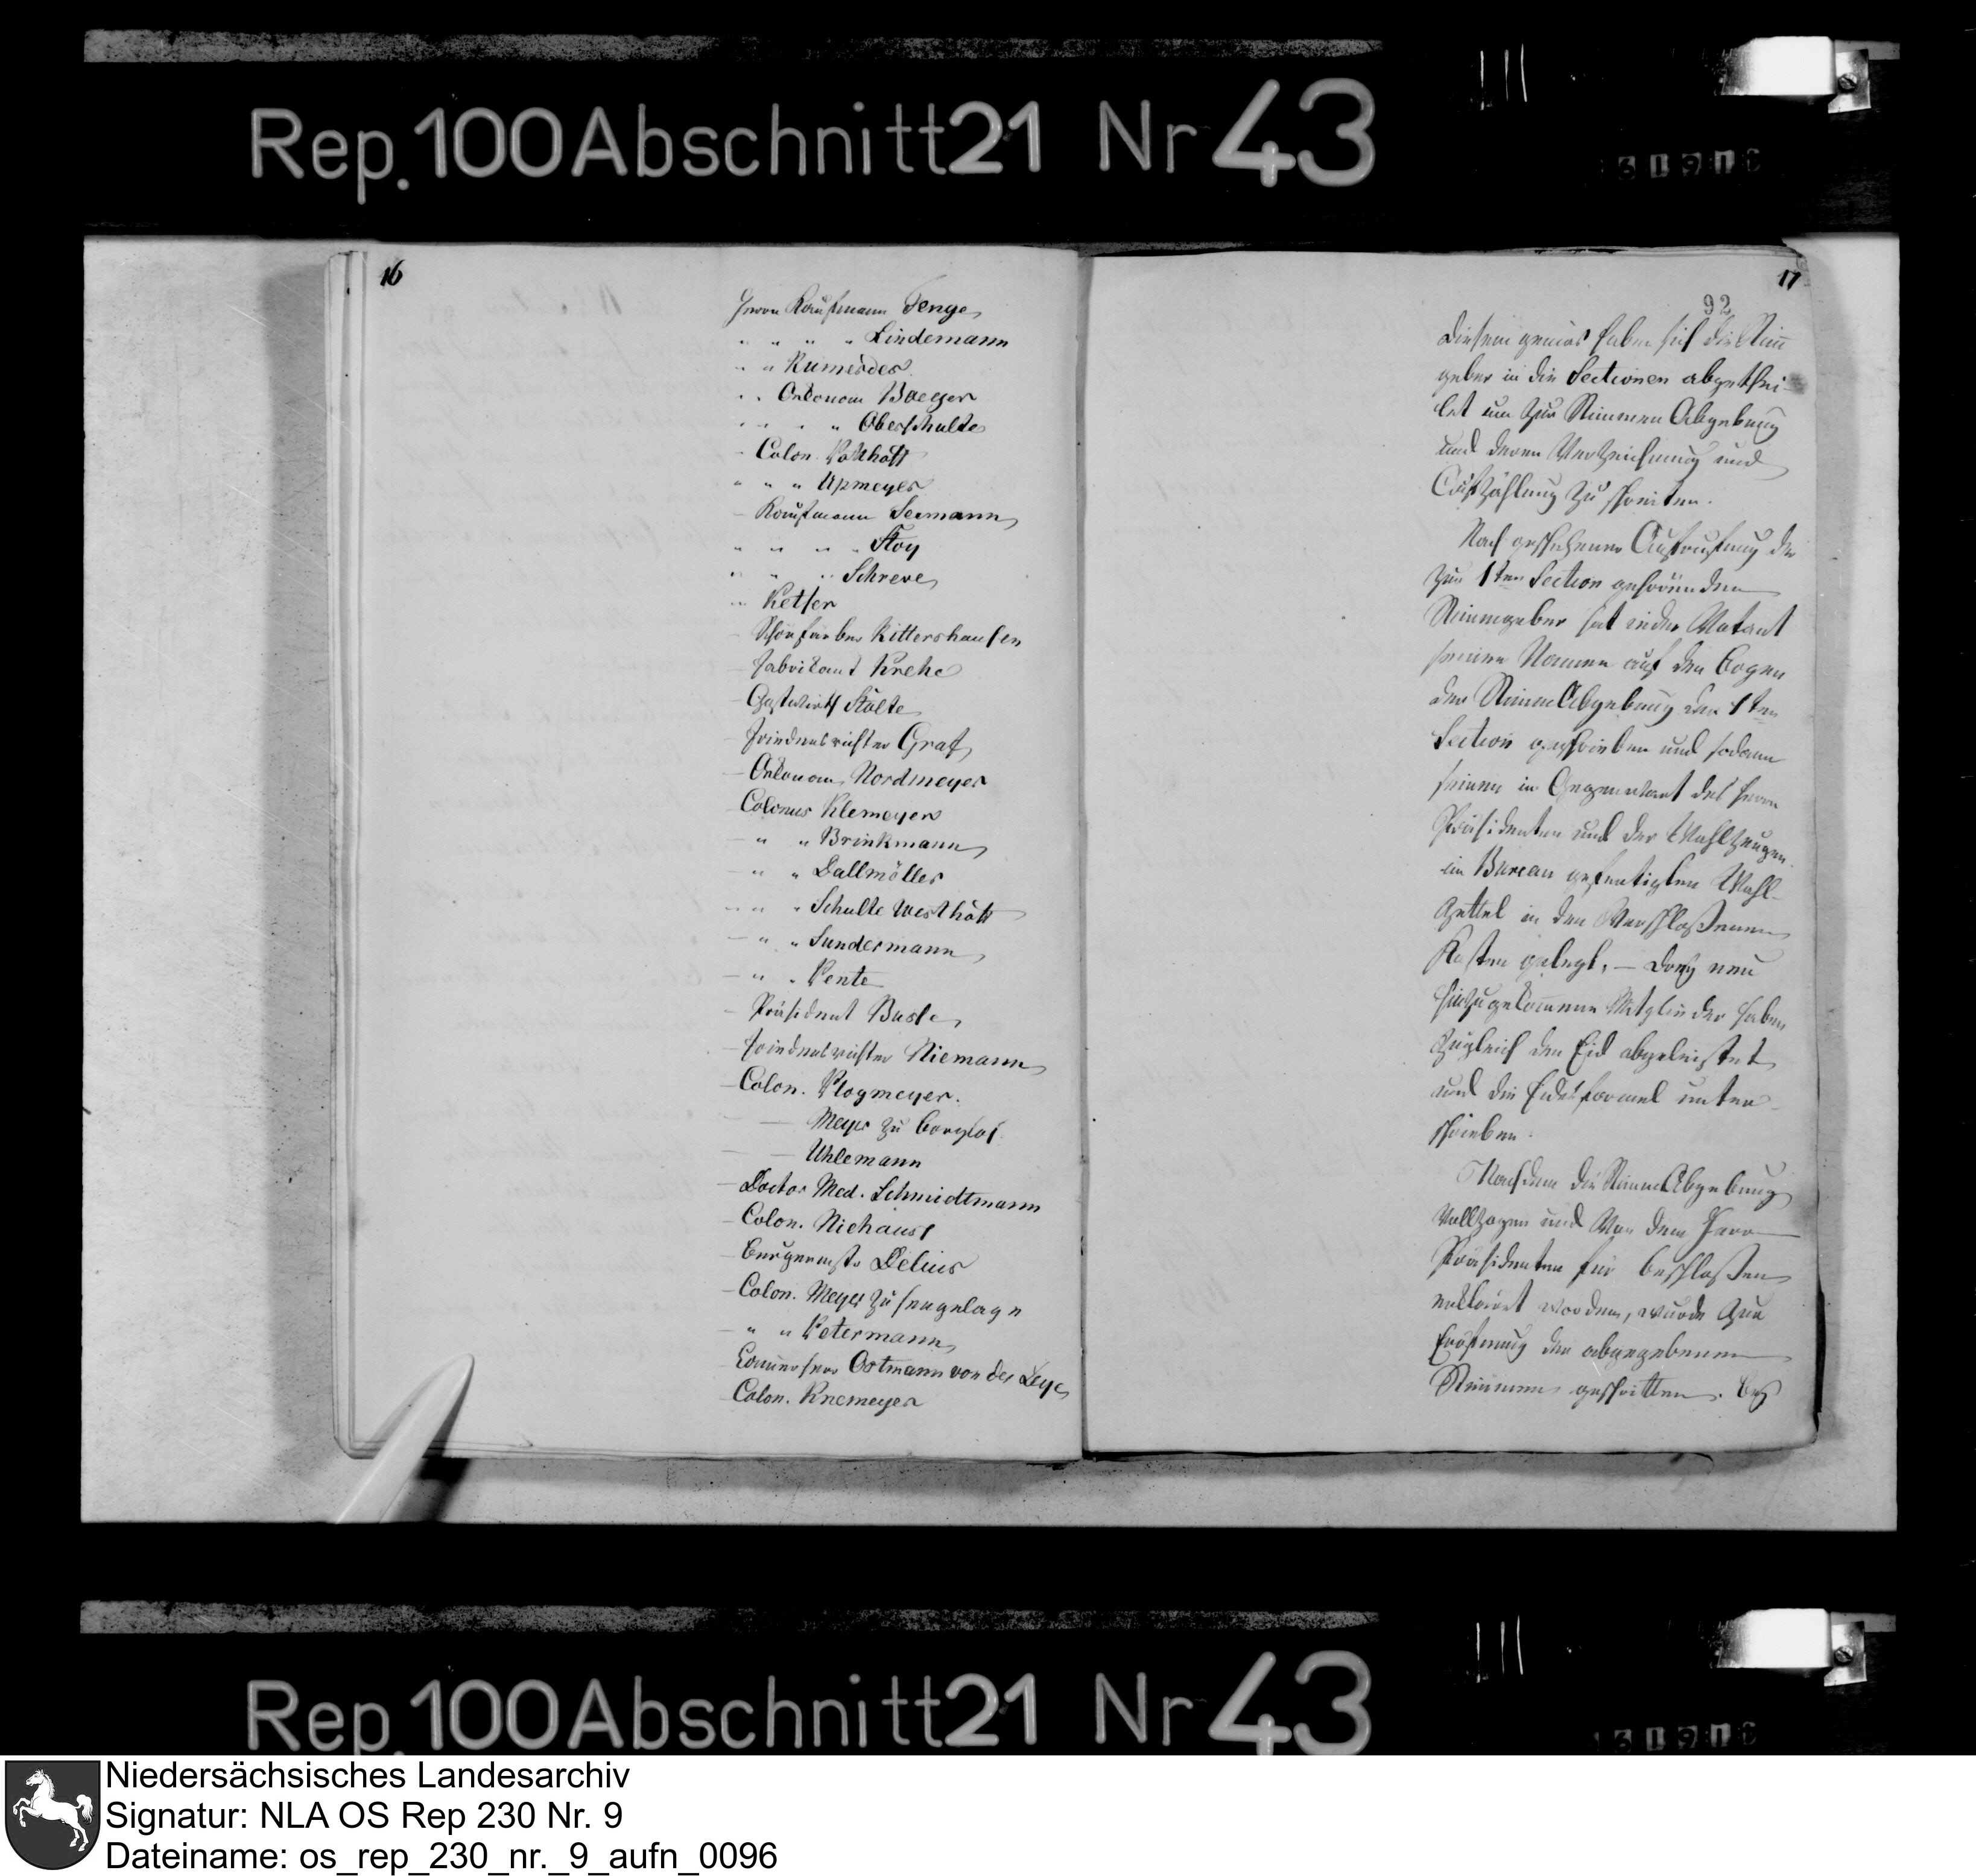 Rep. 100 Abschnitt 21 Nr 43
16
Herrn Kaufmann Tenge
" " " " Lindemann
" " Rumerdes
" " Oekonom Baeger
" " " " Oberschulte
- Colon. Potthoff
" " " Upmeyer
- Kaufmann Seemann
" " " " Stoy
" " " Schreve
" Ketser
- Schönfärber Rittershausen
- Fabrikant Krehe
- Gastwirth Stolte
- Friedensrichter Graf
- Oekonom Nordmeyer
Colonus Klemeyer
- " " Brinkmann
- " " Dallmöller
" " " Schulte Westhoff
- " " Sundermann
- " " Pente
- Präsident Busle
- Friedensrichter Niemann
- Colon. Plogmeyer.
- Meyer zu
- - Uhlemann
- Doctor Med. Schmidtmann
- Colon. Niehaus
- Burgermstr Delius
- Colon. Meyer zu Hengelage
- " " Petermann
- Cammerherr Ostmann von der Leye
- Colon. Knemeyer
17
92
Diesem gemäs haben sich die Stim̅
geber in die Sectionen abgethei-
let um zur Stimmen Abgebung
und deren Verzeichnung und
zu schreiten.
Nach geschehener Aufrufung der
zur 1ten Section gehörenden
Stimmgeber hat jeder Votant
seinen Namen auf den Bogen
der Stimm Abgebung der 1ten
Section geschrieben und sodann
seinen in Gegenwart des Herrn
Präsidenten und der Wahlzeugen
im Bureau gefertigten Wahl-
Zettel in den Verschloßenen
Kasten gelegt. — Drey neu
hinzugekom̅ene Mitglieder haben
zugleich den Eid abgeleistet
und die Eidesformel unter-
schrieben.
Nachdem die Stimm Abgebung
Vollzogen und Von dem Herrn
Präsidenten für beschloßen
erklärt worden, wurde zur
Eröfnung der abgegebenen
Stimmen geschritten. Bey
Rep. 100 Abschnitt 21 Nr 43
Niedersächsisches Landesarchiv
Signatur: NLA OS Rep 230 Nr. 9
Dateiname: os_rep_230_nr._9_aufn_0096